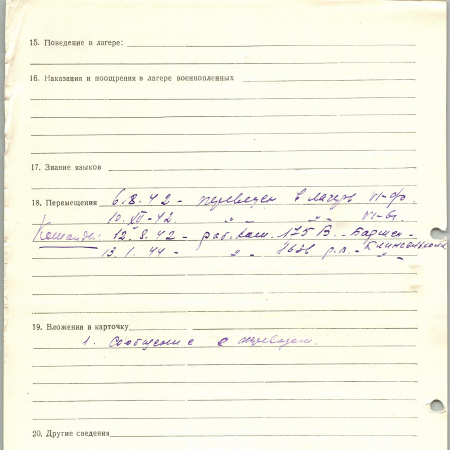 15. Поведение в лагере:
16. Наказания и поощрения в лагере военнопленных
17. Знание языков
18. Перемещения 6.8.42 - переведен в лагерь VI-ф.
10.XII-42. " " " VI-
Команды: 12.8.42 - раб. ком. 175 В. - Бармен-
13.1.44 - " 1606 р.п. - "
19. Вложения в карточку
1. Сообщение о переводе.
20. Другие сведения